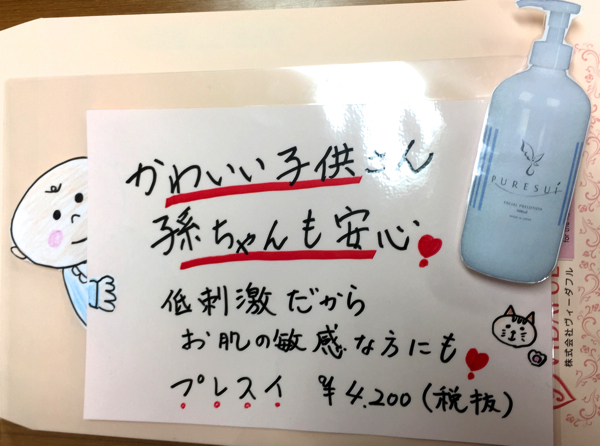 かわいい子供さん
孫ちゃんも安心
低刺激だから
お肌の敏感な方にも
プレスイ ¥4.200(税抜)
PURESUI
FACIAL PRELOTION
株式会社ヴィーダフル